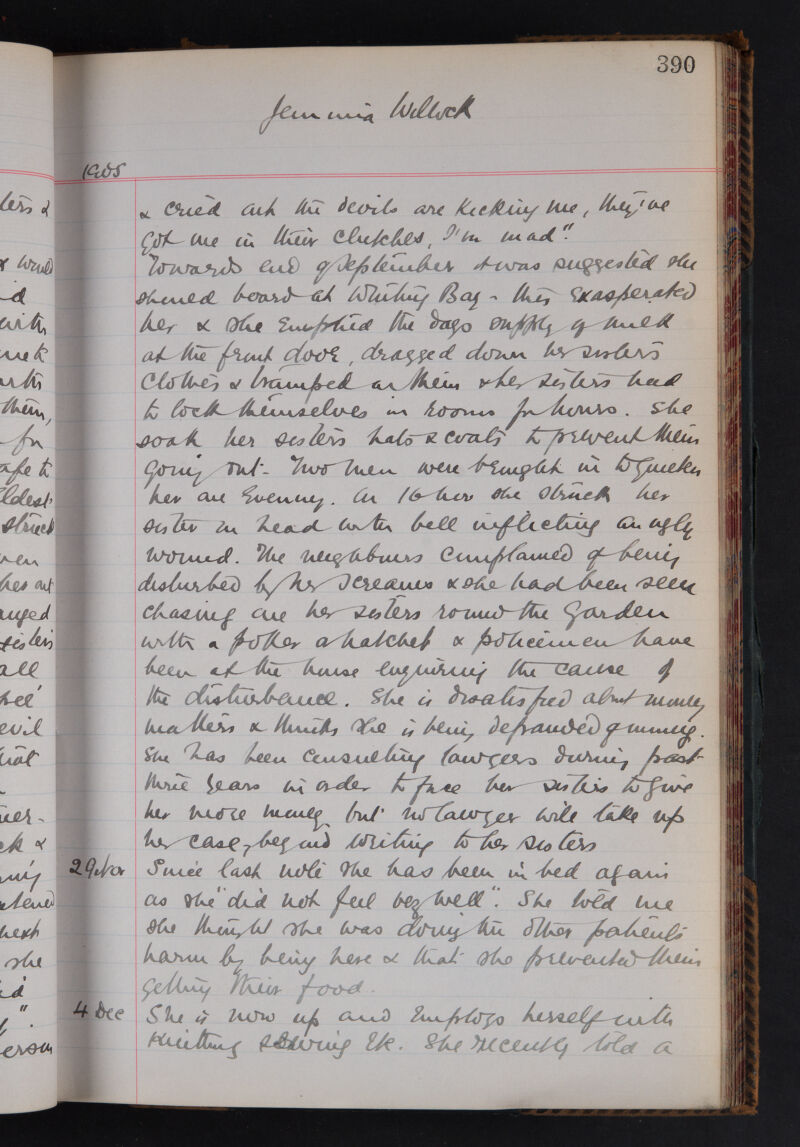 390
Jemmia Willock
1905
& cried out the devils are kicking me, they've
got me in their clutches, I'm mad".
Towards end of September it was suggested she
should board at Whiting Bay - this exasperated
her & she emptied the days supply of milk
at the front door, dragged down her sisters
clothes & tramped on them & her sisters had
to lock themselves in rooms for hours. She
soak her sisters hats & coats to prevent them
going out - Two men were brought in to quieten
her one evening. On 16 Nov she struck her
sister on head with bell inflicting an ugly
wound. The neighbours complained of being
disturbed by her screams & she had been seen
chasing one her sisters round the garden
with a poker a hatchet & policemen have
been at the house enquiring the cause of
the disturbance. She is disatisfied about money
matters & thinks she is being defrauded of money.
She has been consulting lawyers during past
three years in order to force her sisters to give
her more money but no lawyer will take up
her case, beyond writing to her sisters
29 Nov Since last note she has been in bed again
as she "did not feel very well". She told me
she thought she was doing the other patients
harm by being here & that she prevented them
getting their food.
4 Dec She is now up and employs herself with
knitting sewing etc. She recently told a